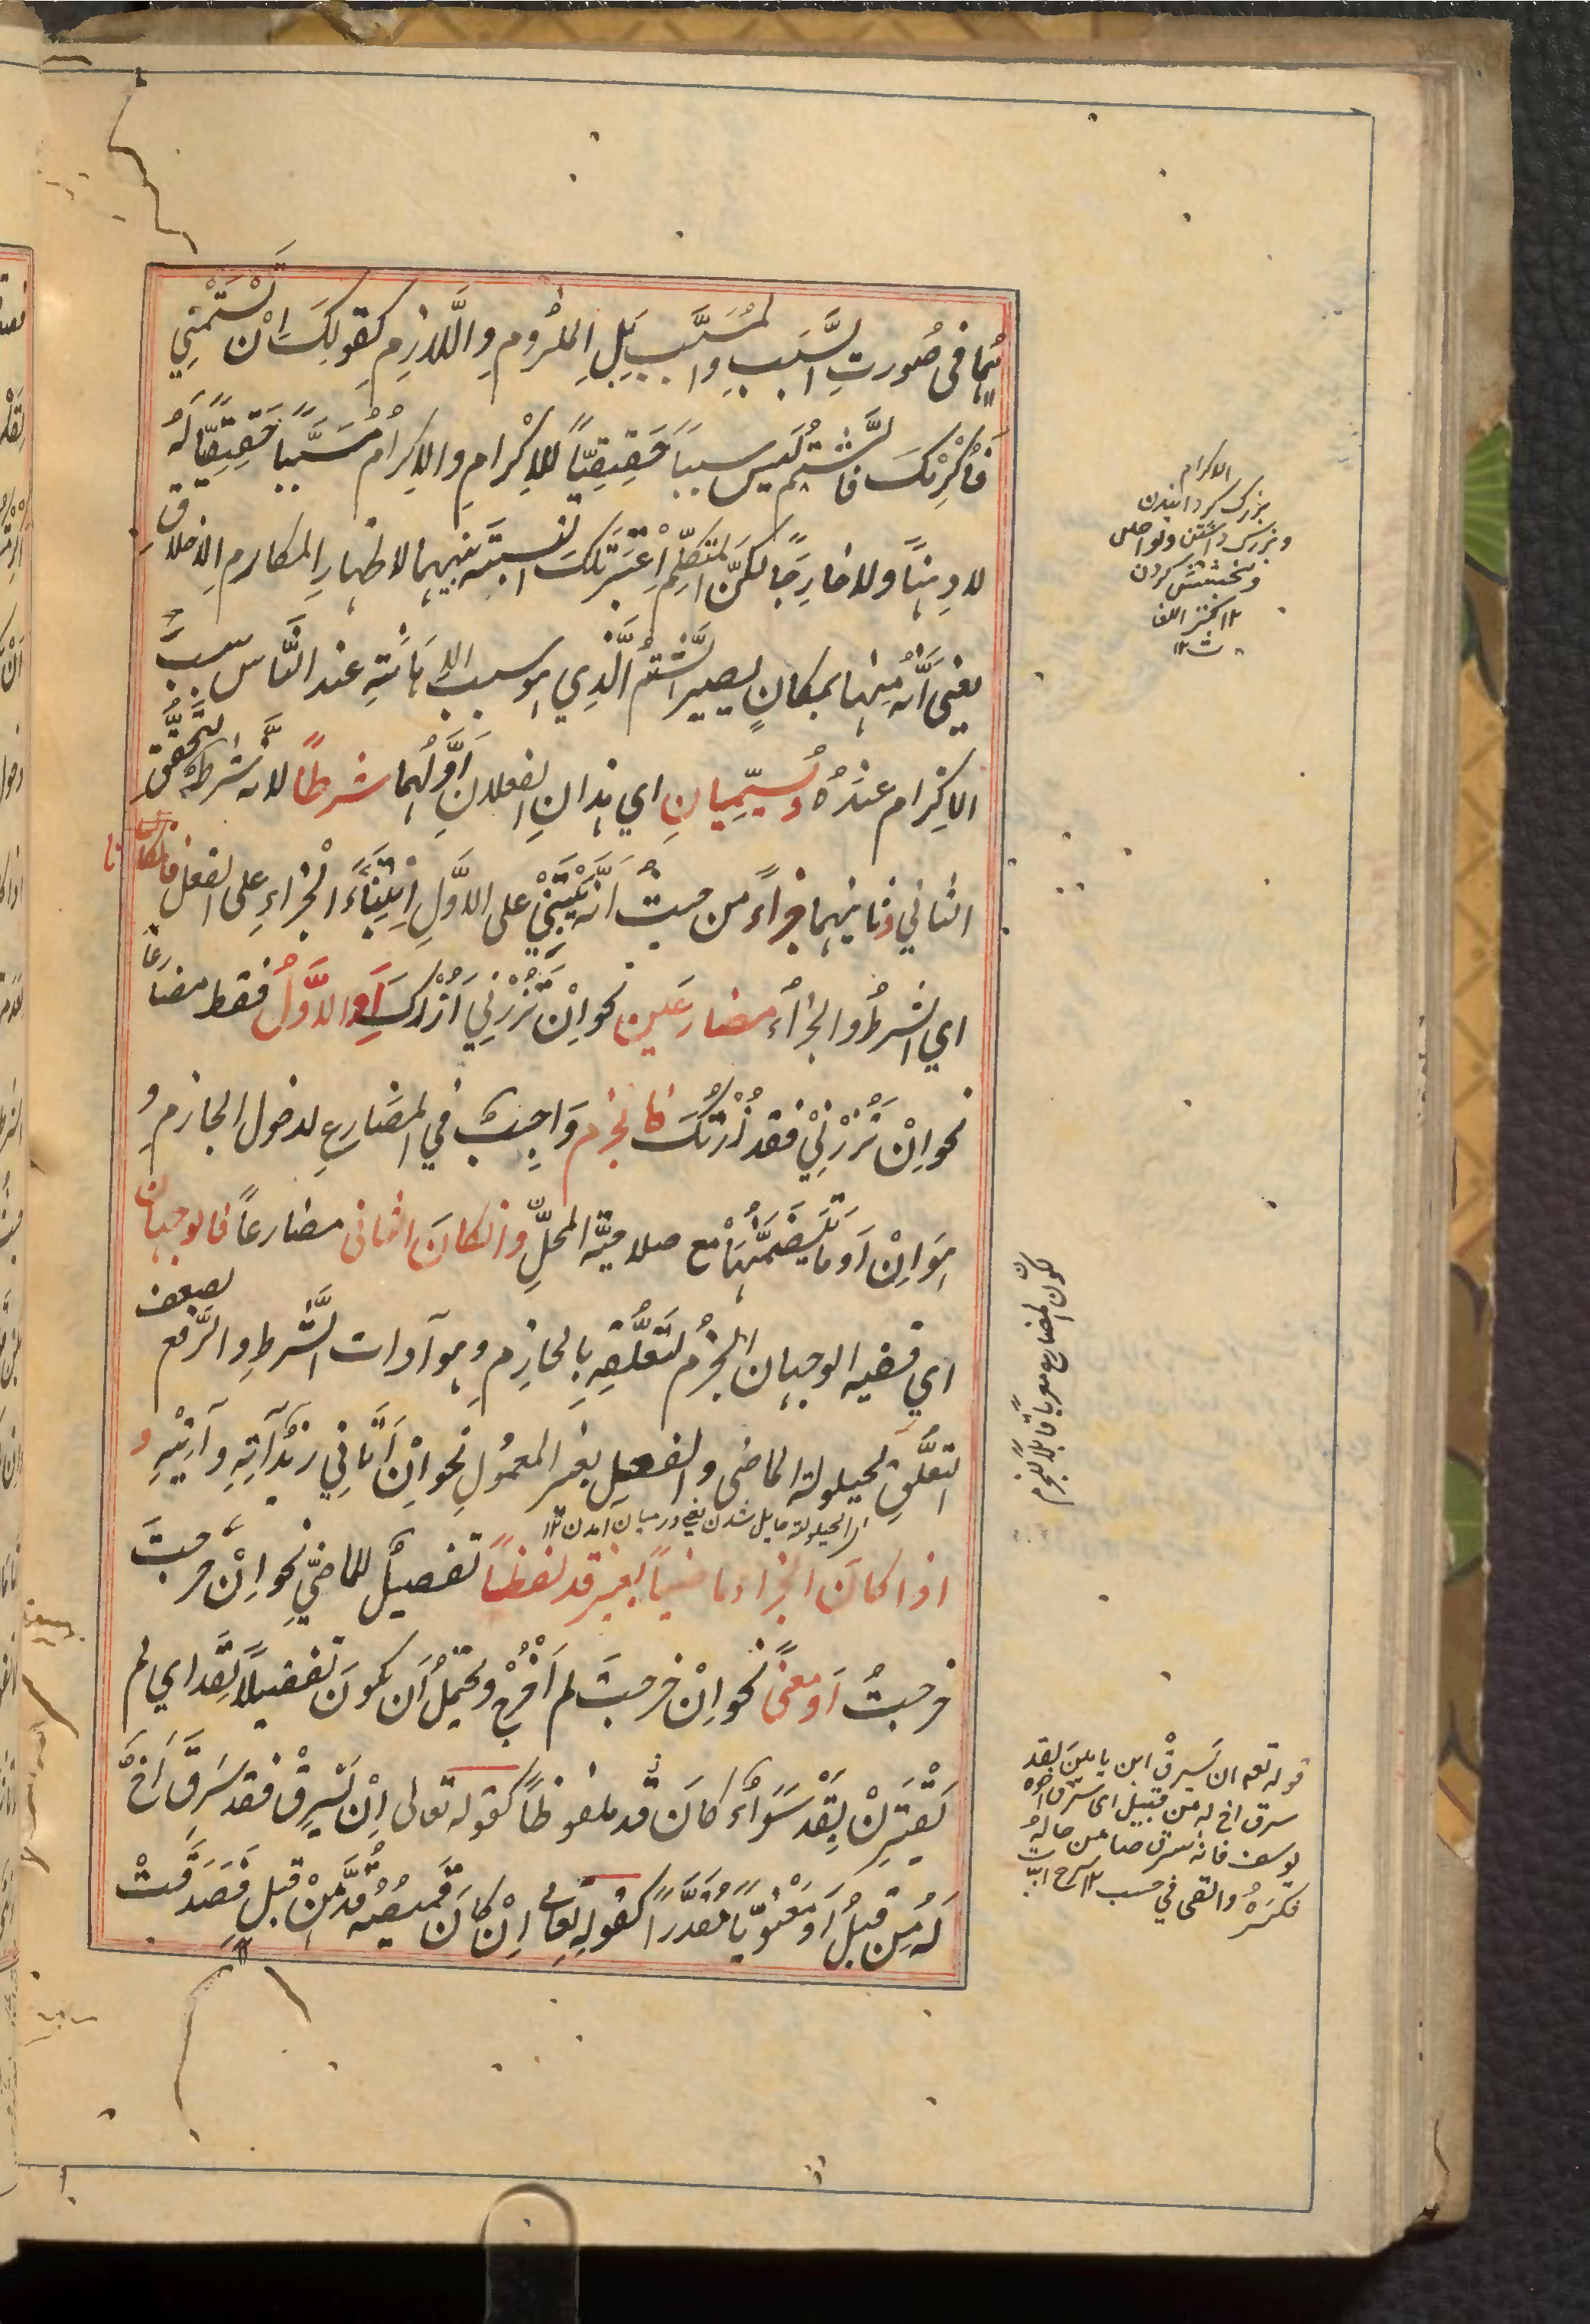 هُما في صُورتِ السَّبَبِ والمُسَبَّبِ بَلِ المَلزُومِ واللَّازِمِ كقولِكَ اِنْ تَشْتِمْنِي
فَاُكْرِمْكَ فالشَّتمُ لَيسَ سبباً حَقِيقِيّاً لِلاِكْرامِ والاِكرامُ مُسَبَّباً حَقِيقِيّاً لَهُ
لا ذِهناً ولا خارِجاً لكنّ المتكلِّم اِعْتَبَرَ تلكَ النِّسبَةَ بينهما لاظهارِ المكارمِ الاخلاقِ
يعني أنّه مِنها بمكانٍ يصير الشَّتمُ الَّذِي هو سببُ الاِهانَتِهِ عند النَّاس سببَ
الاِكْرام عندَهُ ويُسَمَّيانِ اي هذانِ الفعلانِ اَوَّلُهُما شرطاً لانّه شرطٌ لتَحَقُّقِ
الثاني وثانيهما جزاءً من حيثُ اَنَّه يَبْتَنِيْ على الاوَّلِ اِبْتِنَاءَ الْجزاءِ على الفعل فان كانا
اي الشرطُ والجزاءُ مضارعَين نحو اِنْ تَزُرْنِي اَزُرْكَ اَوِ الاَوَّلُ فقط مضارعاً
نحو اِنْ تَزُرْنِيْ فقد زُرْتُكَ فالجزم وَاجِبٌ في المضارعِ لدخول الجازمِ و
هُوَ اِنْ اَو ما يَتَضَمَّنُهَا مع صلاحيّةِ المحلِّ وان كانَ الثاني مضارعاً فالوجهان
اي ففيه الوجهان الجزمُ لتَعَلُّقِهِ بالجازمِ وهو اَدَوات الشَّرطِ والرَّفع لضعف
التعلُّقِ لحيلولة الماضي والفصل بغير المعمُولِ نحو اِنْ اَتَانِي زيدٌ آتِهِ وآتِيْهِ و
الحيلولة حايل شدن يعني درميان امدن ١٢
اذا كانَ الجزاء ماضياً بغير قد لفظاً تفصيلٌ للماضيِّ نحو اِنْ خرجتَ
خرجتُ اَو معنىً نحو اِنْ خرجتَ لم اَخْرُجْ ويحتملُ اَن يكونَ تفصيلاً لقد اي لم
يَقْتَرِنْ بِقَدْ سَوَاءٌ كانَ قد ملفوظاً كقوله تعالى اِنْ يَسْرِقْ فقد سَرَقَ اَخٌ
لَهُ مِن قبلُ اَو مَعْنَوِيّاً مُقدَّراً كقولِه تعالى اِنْ كَانَ قَمِيصُهُ قُدَّ مِنْ قبلٍ فَصَدَقَتْ
الاكرام
بزرك كردانيدن
وبزرك داشتن ونواختن
وبخشش كردن
١٢ كنز اللغا
ت ١٢
كون المضارع معرباً قابلاً للجزم
قوله تعه ان يَسرِقْ ابن يامين لقد
سرق اخ له من قبيل اي سرق اخوه
يوسف فانه سرق صنما من خالهُ
فكسرهُ والقى في